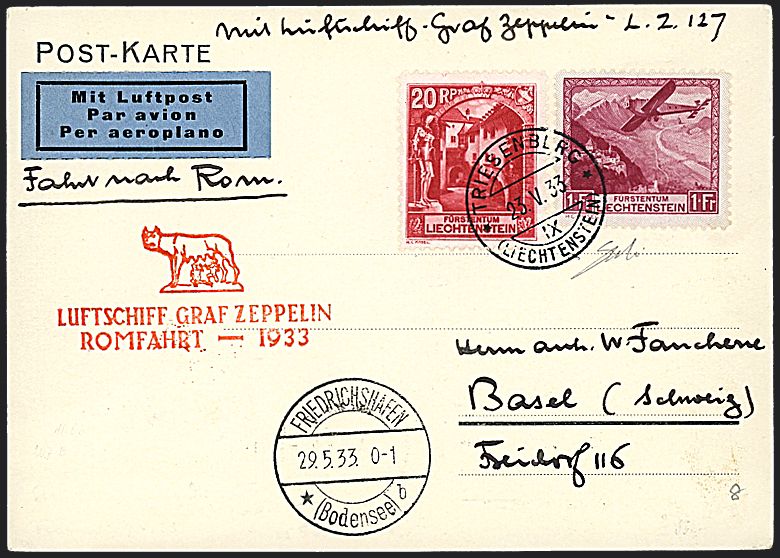 mit Luftschiff-Graf Zeppelin - L. Z. 127
POST-KARTE
Mit Luftpost
Par avion
Per aeroplano
Fahrt nach Rom.
20 RP
FÜRSTENTUM
LIECHTENSTEIN
1 Fr
FÜRSTENTUM
LIECHTENSTEIN
1 Fr
TRIESENBERG
23.V.33
IX
(LIECHTENSTEIN)
LUFTSCHIFF GRAF ZEPPELIN
ROMFAHRT — 1933
Herrn W.
Basel (Schweiz)
Freidorf 116
FRIEDRICHSHAFEN
29.5.33. 0-1
(Bodensee) b
8